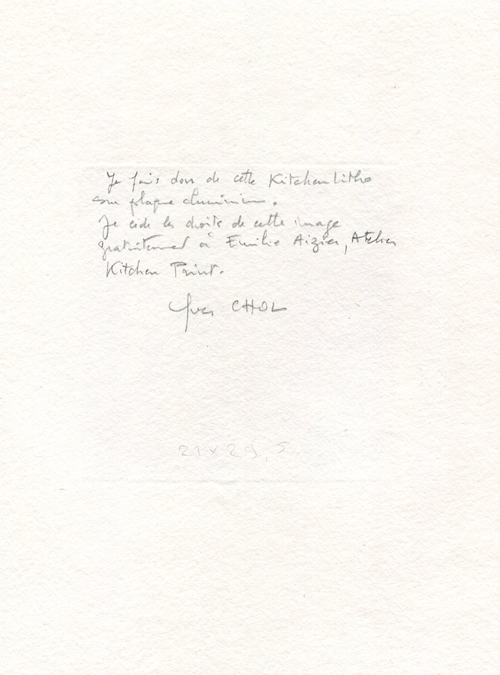 Je fais don de cette Kitchen Litho
sur plaque aluminium.
Je cède les droits de cette image
gratuitement à Emilie Aizier, Atelier
Kitchen Print.
Yves CHOL
21 x 29,5